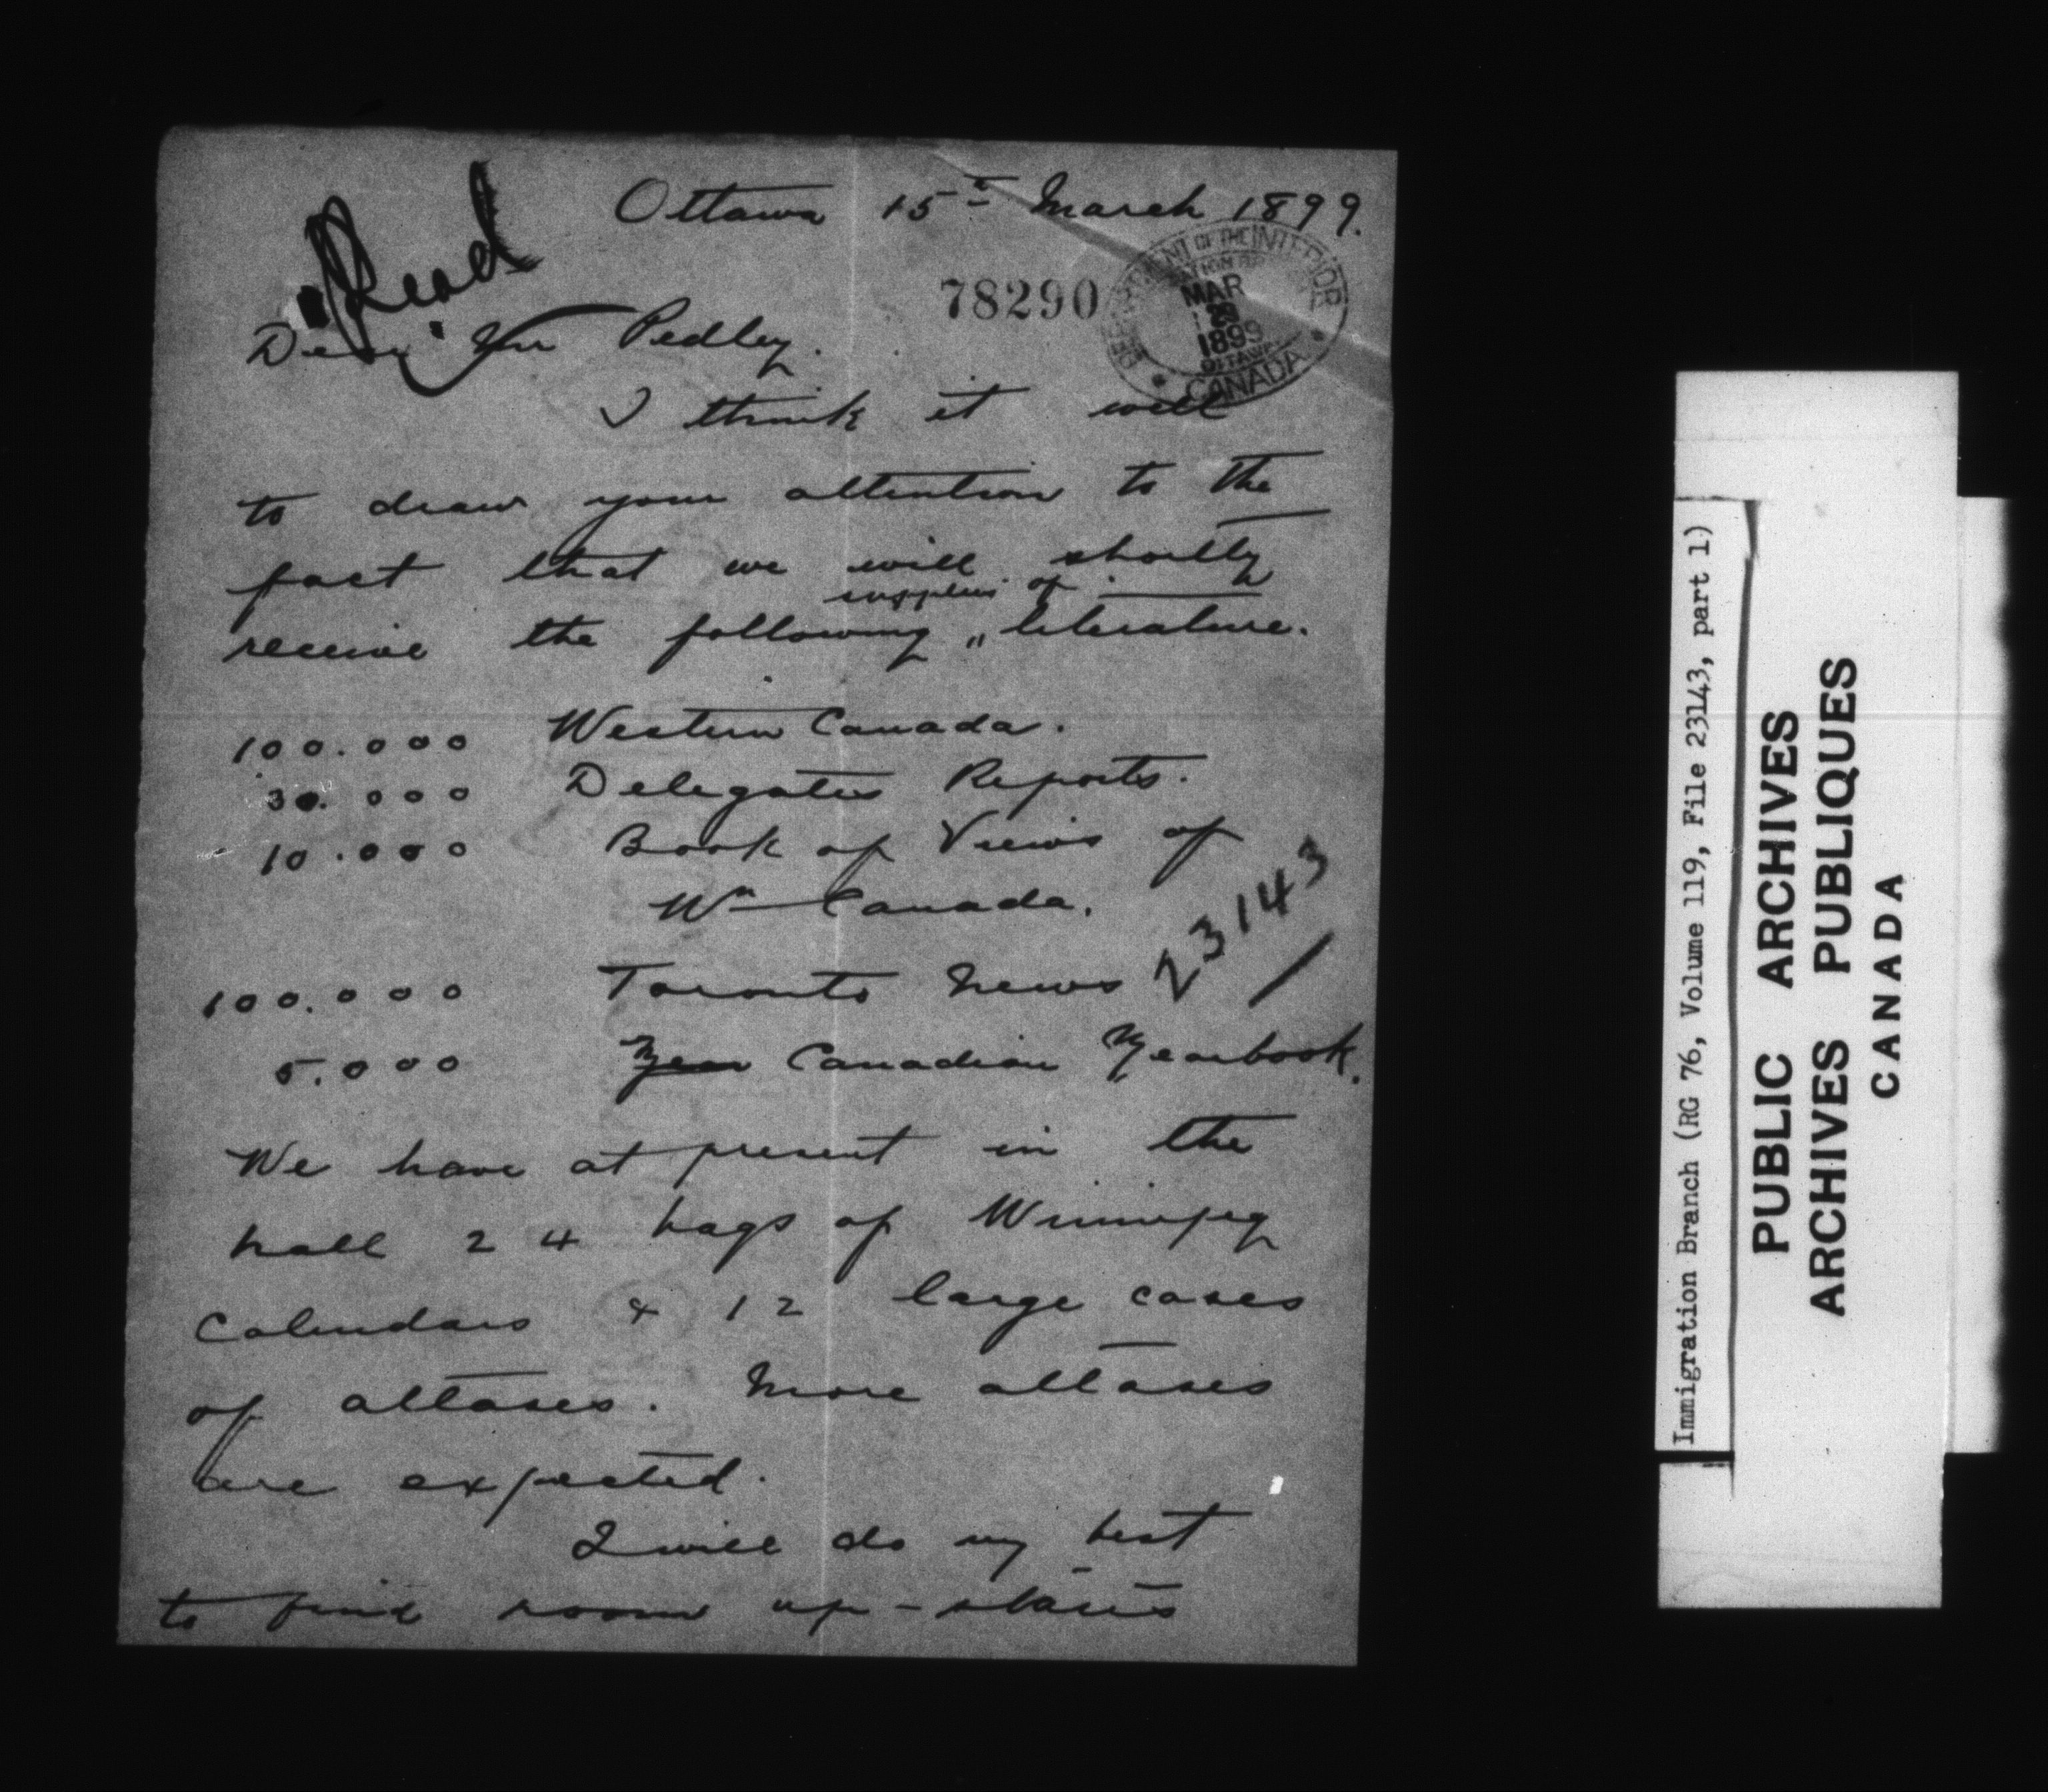 Read
Ottawa 15th March 1899.
78290
DEPARTMENT OF THE INTERIOR
MAR
1899
OTTAWA
CANADA
Dear Mr Pedley.
I think it well
to draw your attention to the
fact that we will shortly
supplies of
receive the following " literature.
100.000 Western Canada.
30.000 Delegates Reports.
10.000 Book of Views of
Wn Canada.
23143
100.000 Toronto News
5.000 Year Canadian Yearbook.
We have at present in the
hall 24 bags of Winnipeg
Calendars & 12 large cases
of atlases. More atlases
are expected.
I will do my best
to find room up-stairs
Immigration Branch (RG 76, Volume 119, File 23143, part 1)
PUBLIC ARCHIVES
ARCHIVES PUBLIQUES
CANADA